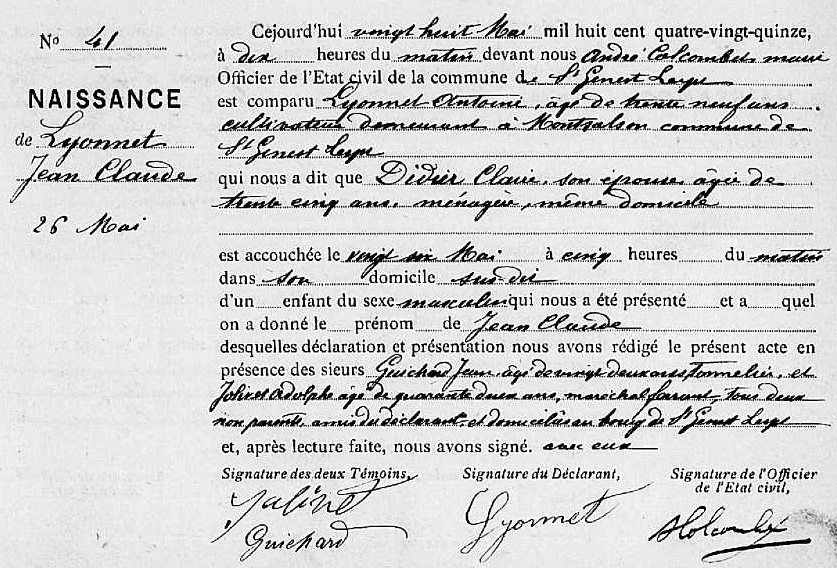 No 41
NAISSANCE
de Lyonnet
Jean Claude
26 Mai
Cejourd'hui vingt huit Mai mil huit cent quatre-vingt-quinze,
à dix heures du matin devant nous André Colcombet maire
Officier de l'Etat civil de la commune de St Genest Lerpt
est comparu Lyonnet Antoine, âgé de trente neuf ans
cultivateur demeurant à Montsalson commune de
St Genest Lerpt
qui nous a dit que Didier Claire, son épouse, âgée de
trente cinq ans, ménagère, même domicile
est accouchée le vingt six Mai à cinq heures du matin
dans son domicile sus-dit
d'un enfant du sexe masculin qui nous a été présenté et a quel
on a donné le prénom de Jean Claude
desquelles déclaration et présentation nous avons rédigé le présent acte en
présence des sieurs Guichard Jean, âgé de vingt deux ans, tonnelier, et
Jolivet Adolphe âgé de quarante deux ans, maréchal ferrant, tous deux
non parents, amis du déclarant, et domiciliés au bourg de St Genest Lerpt
et, après lecture faite, nous avons signé. avec eux
Signature des deux Témoins, Signature du Déclarant, Signature de l'Officier
de l'Etat civil,
Jolivet
Guichard
Lyonnet
A Colcombet